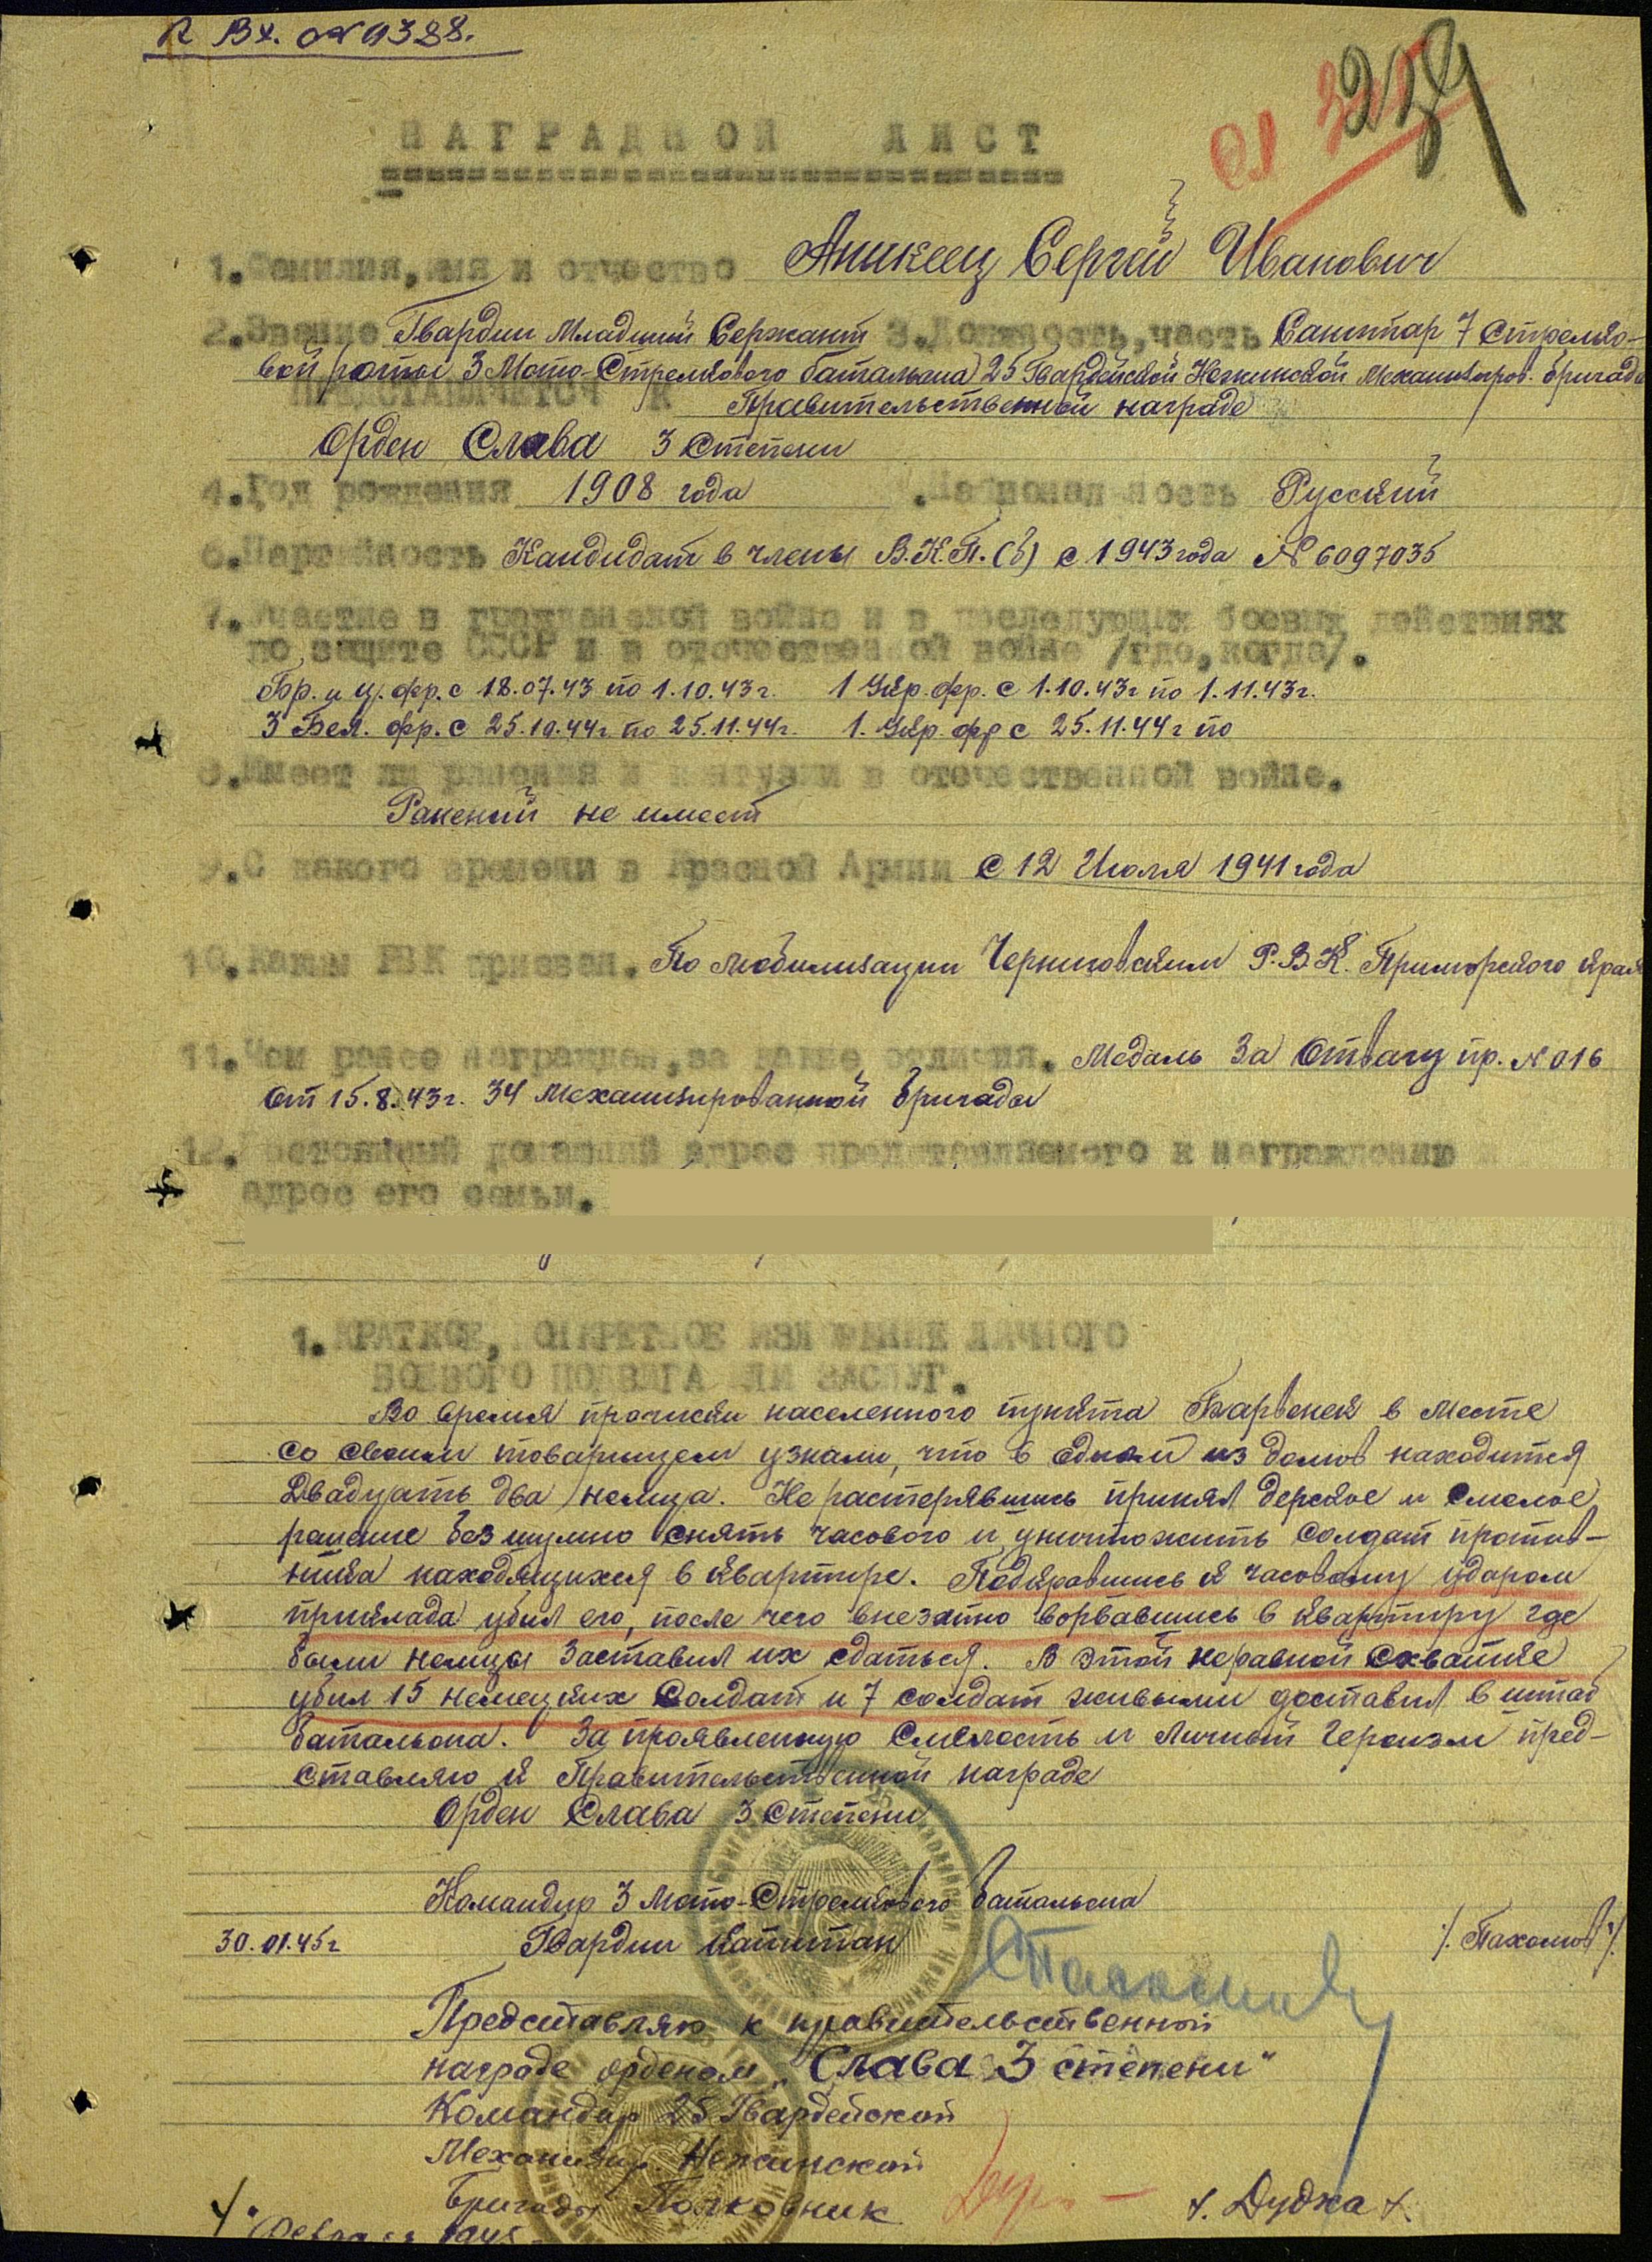 Вх. № 0388.
239
НАГРАДНОЙ ЛИСТ
1. Фамилия, имя и отчество Аникеец Сергей Иванович
2. Звание Гвардии Младший Сержант 3. Должность, часть Санитар 7 Стрелко-
вой роты 3 Мото-Стрелкового батальона 25 Гвардейской Нежинской Механизиров. бригады
ПРЕДСТАВЛЯЕТСЯ К Правительственной награде
Орден Слава 3 Степени
4. Год рождения 1908 года . Национальность Русский
6. Партийность Кандидат в члены В.К.П.(б) с 1943 года № 6097035
7. Участие в гражданской войне и в последующих боевых действиях
по защите СССР и в отечественной войне /где, когда/.
Бр. и ц. фр. с 18.07.43 по 1.10.43 г. 1 Укр. фр. с 1.10.43 г по 1.11.43 г.
3 Бел. фр. с 25.10.44 г. по 25.11.44 г. 1. Укр. фр с 25.11.44 г по
8. Имеет ли ранения и контузии в отечественной войне.
Ранений не имеет
9. С какого времени в Красной Армии с 12 Июля 1941 года
10. Каким РВК призван. По мобилизации Черниговским Р.В.К. Приморского края
11. Чем ранее награжден, за какие отличия. Медаль За Отвагу пр. № 016
от 15.8.43 г. 34 Механизированной бригады
12. Постоянный домашний адрес представляемого к награждению и
адрес его семьи.
1. КРАТКОЕ, КОНКРЕТНОЕ ИЗЛОЖЕНИЕ ЛИЧНОГО
БОЕВОГО ПОДВИГА ИЛИ ЗАСЛУГ.
Во время прочиски населенного пункта Барвенек в месте
со своим товарищем узнали, что в одном из домов находится
двадцать два немца. Не растерявшись принял дерское и смелое
рашение безшумно снять часового и уничтожить солдат против-
ника находящихся в квартире. Подкравшись к часовому ударом
приклада убил его, после чего внезапно ворвавшись в квартиру где
были немцы заставил их сдаться. В этой неравной схватке
убил 15 немецких солдат и 7 солдат живыми доставил в штаб
батальона. За проявленную смелость и личный героизм пред-
ставляю к Правительственной награде
Орден Слава 3 Степени
Командир 3 Мото-Стрелкового батальона
30.01.45 г Гвардии капитан /. Пахомов /.
Представляю к правительственной
награде орденом „Слава 3 степени"
Командир 25 Гвардейской
Механизир. Нежинской
Бригады Полковник /. Дудка /.
4 Февраля 1945